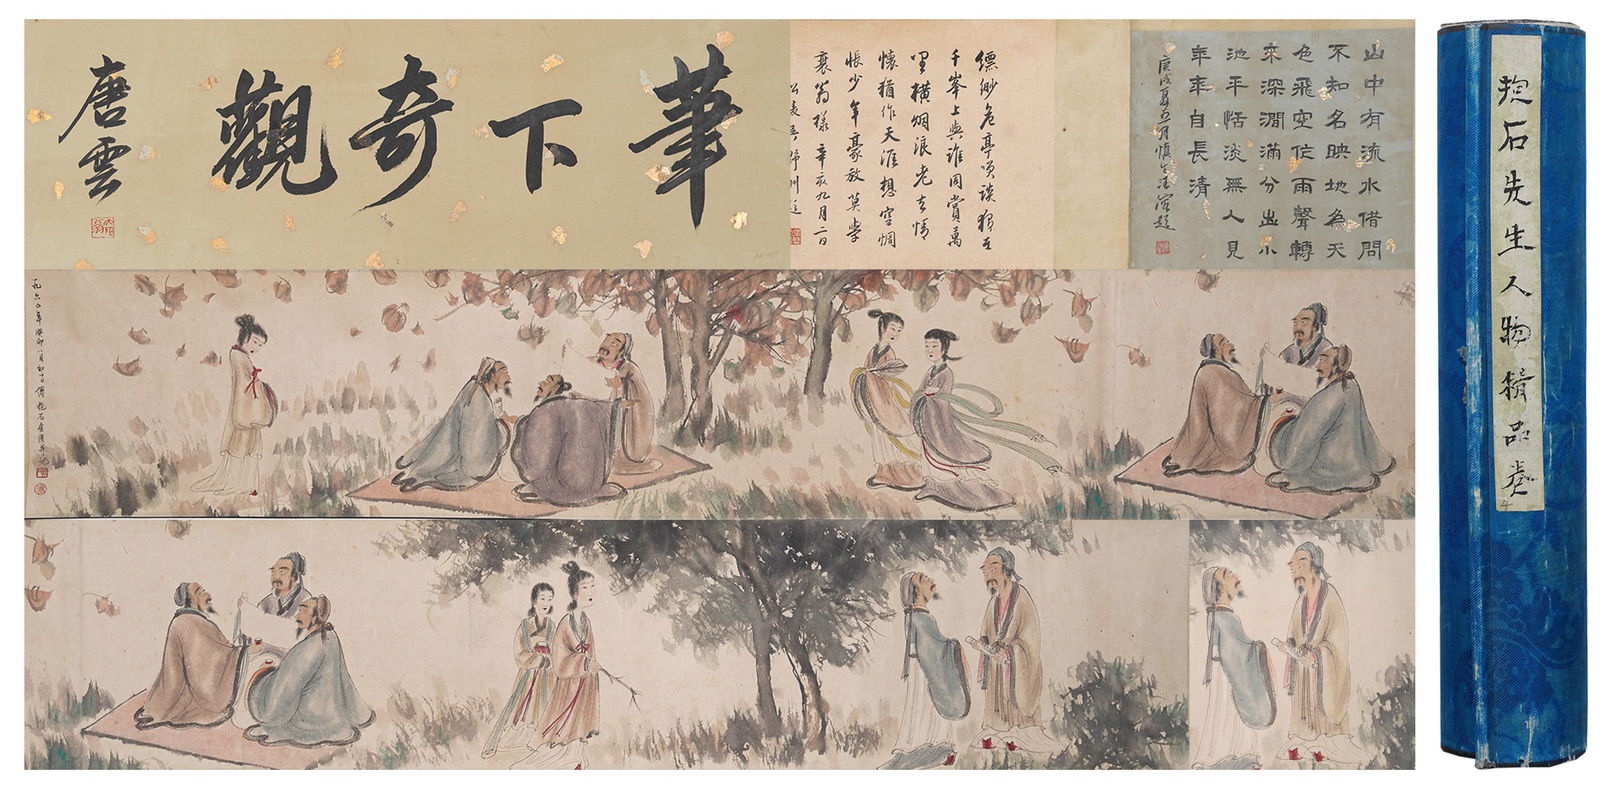 筆下奇觀
唐雲
縹緲危亭頌談獨在
千峯上與誰同賞萬
里橫烟浪老去情
懷猶作天涯想空惆
悵少年豪放莫學
衰翁樣辛亥九月二日
山中有流水借問
不知名映地為天
色飛空作雨聲轉
來深澗滿分出小
池平恬淡無人見
年年自長清
抱石先生人物精品卷